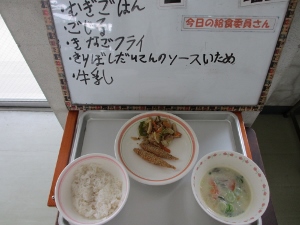 ・むぎごはん
・ごじる
・きなごフライ
・きりぼしだいこんのソースいため
・牛乳
今日の給食委員さん